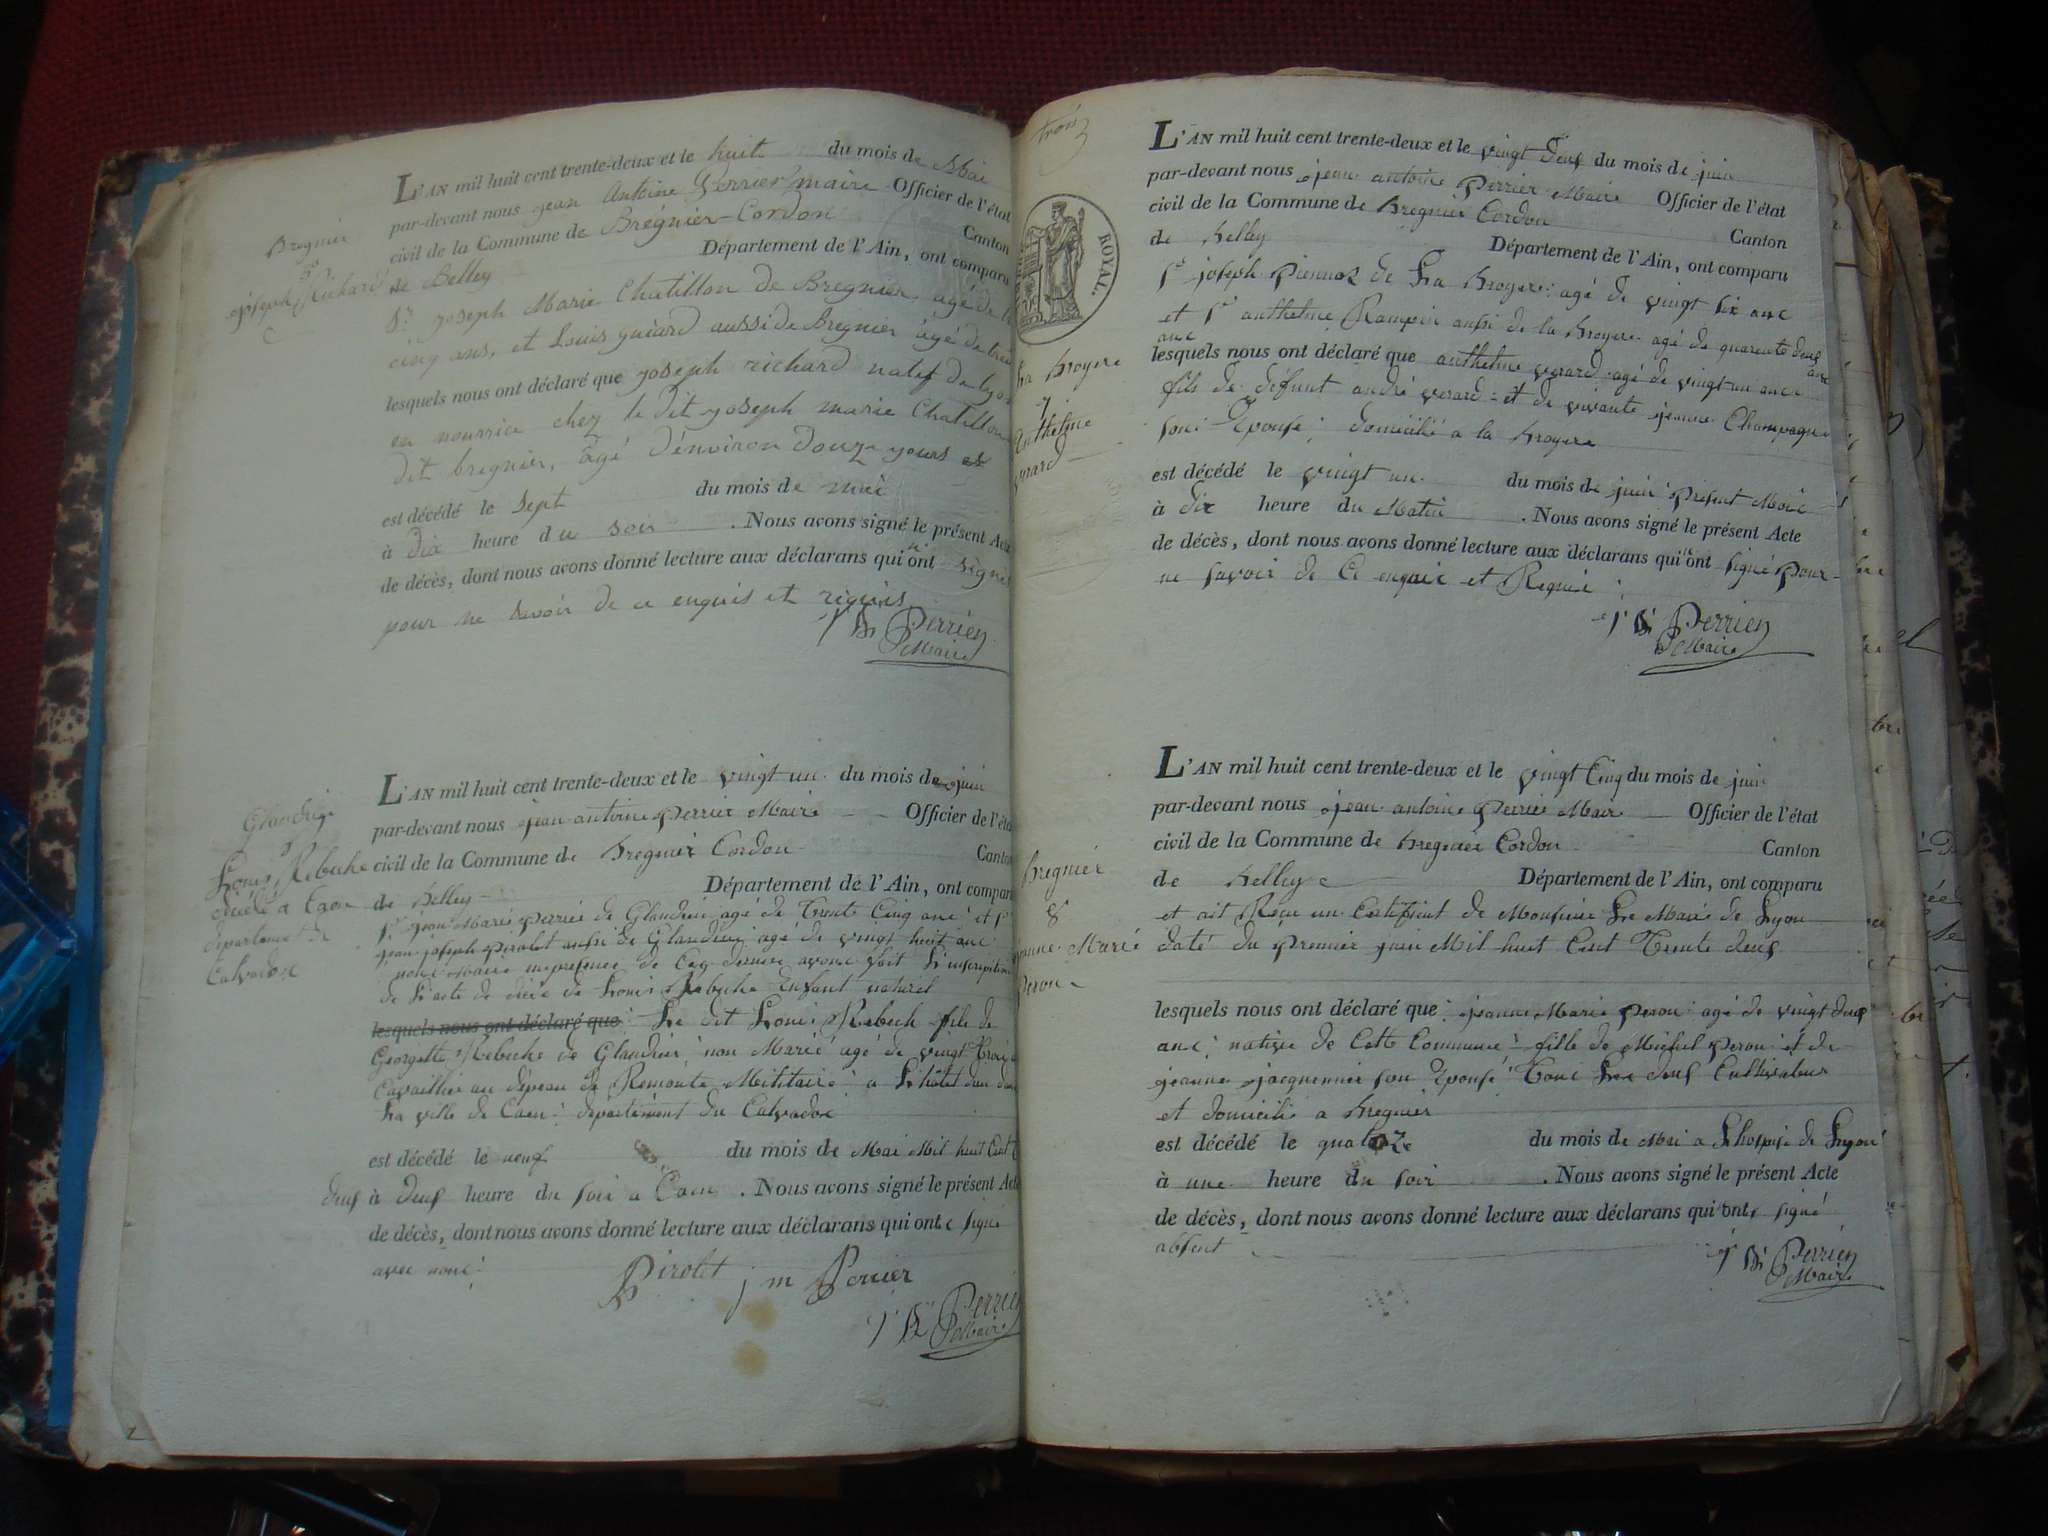 Bregnier
5
joseph Richard
L'AN mil huit cent trente-deux et le huit du mois de Mai
par-devant nous jean Antoine Perrier maire Officier de l'état
civil de la Commune de Brégnier-Cordon Canton
de Belley Département de l'Ain, ont comparu
Sr. joseph Marie Chatillon de Bregnier, agé de
cinq ans, et Louis guiard aussi de Bregnier âgé de
lesquels nous ont déclaré que joseph richard natif de lyon
en nourrice chez le dit joseph marie Chatillon
dit bregnier, âgé d'énviron douze jours
est décédé le Sept du mois de mai
à dix heure du soir . Nous avons signé le présent Acte
de décès, dont nous avons donné lecture aux déclarans qui n'ont signés
pour ne savoir de ce enquis et requis
Perrier
Maire
Glandieu
6
Louis Rebuche
décédé a Caen
département de
Calvados
L'AN mil huit cent trente-deux et le vingt un du mois de juin
par-devant nous jean antoine Perrier Maire Officier de l'état
civil de la Commune de Bregnier Cordon Canton
de Belley Département de l'Ain, ont comparu
Sr jean Marie Perrier de Glandieu agé de Trente Cinq anc et Sr
jean joseph Pirolet aussi de Glandieu agé de vingt huit anc
nous Maire en presence de Ceq dernier avons fait L'inscription
de L'acte de décé de Louis Rebuche Enfant naturel
lesquels nous ont déclaré que Le dit Louis Rebuch fils de
Georgette Rebuche de Glandieu, non Marié agé de vingt Trois
Cavaillier au dépeau de Remonte Militaire a
La ville de Caen département du Calvados
est décédé le neuf du mois de Mai Mil huit Cent
deux à deux heure du soir a Caen . Nous avons signé le présent Acte
de décès, dont nous avons donné lecture aux déclarans qui ont signé
avec nous
Pirolet j m Perrier
Perrier
Maire
trois
ROYAL.
La Broyere
7
Anthelme
verard
L'AN mil huit cent trente-deux et le vingt deux du mois de juin
par-devant nous jean antoine Perrier Maire Officier de l'état
civil de la Commune de Bregnier Cordon Canton
de Belley Département de l'Ain, ont comparu
Sr joseph de La Broyere agé de vingt six anc
et Sr anthelme Rampin aussi de la Broyere agé de quarente deux
anc
lesquels nous ont déclaré que anthelme verard agé de vingt un anc
fils de défunt andré verard et de vivante jeanne Champagne
son Epouse, domicilié a la Broyere
est décédé le vingt un du mois de juin Present Moie
à dix heure du Matin . Nous avons signé le présent Acte
de décès, dont nous avons donné lecture aux déclarans qui n'ont signé pour
ne savoir de Ce enquie et Requie
Perrier
Maire
Bregnier
8
jeanne Marie
Peron
L'AN mil huit cent trente-deux et le vingt Cinq du mois de juin
par-devant nous jean antoine Perrier Maire Officier de l'état
civil de la Commune de Bregnier Cordon Canton
de Belley Département de l'Ain, ont comparu
et ait Reçu un Certificat de Monsieur Le Maire de Lyon
daté du Premier juin Mil huit Cent Trente deux
lesquels nous ont déclaré que jeanne Marie Peron agé de vingt deux
anc, native de Cette Commune fille de Michel Peron et de
jeanne son Epouse Tous Les deux Cultivateur
et domicilié a Bregnier
est décédé le quatorze du mois de Mai a Lhospice de Lyon
à une heure du soir . Nous avons signé le présent Acte
de décès, dont nous avons donné lecture aux déclarans qui ont signé
absent
Perrier
Maire